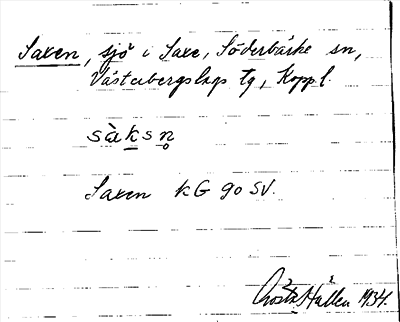 Saxen, sjö i Saxe, Söderbärke sn,
Västerbergslags tg, Koppl.
sàksn̥
Saxen kG 90 SV.
Gösta Hallén 1934.